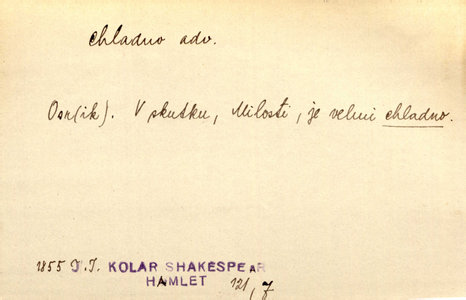 chladno adv.
Osr(ik). V skutku, Milosti, je velmi chladno.
1855 J.J. KOLAR SHAKESPEAR
HAMLET 121, 7